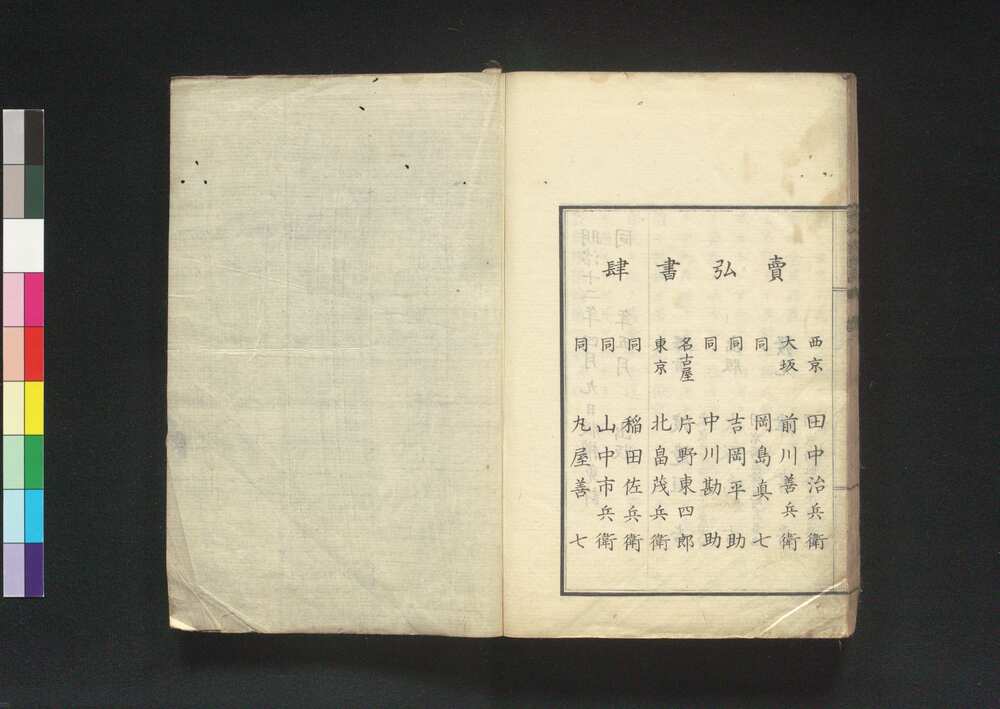 賣弘書肆
西京 田中治兵衛
大坂 前川善兵衛
同 岡島真七
同 吉岡平助
同 中川勘助
名古屋 片野東四郎
東京 北畠茂兵衛
同 稲田佐兵衛
同 山中市兵衛
同 丸屋善七